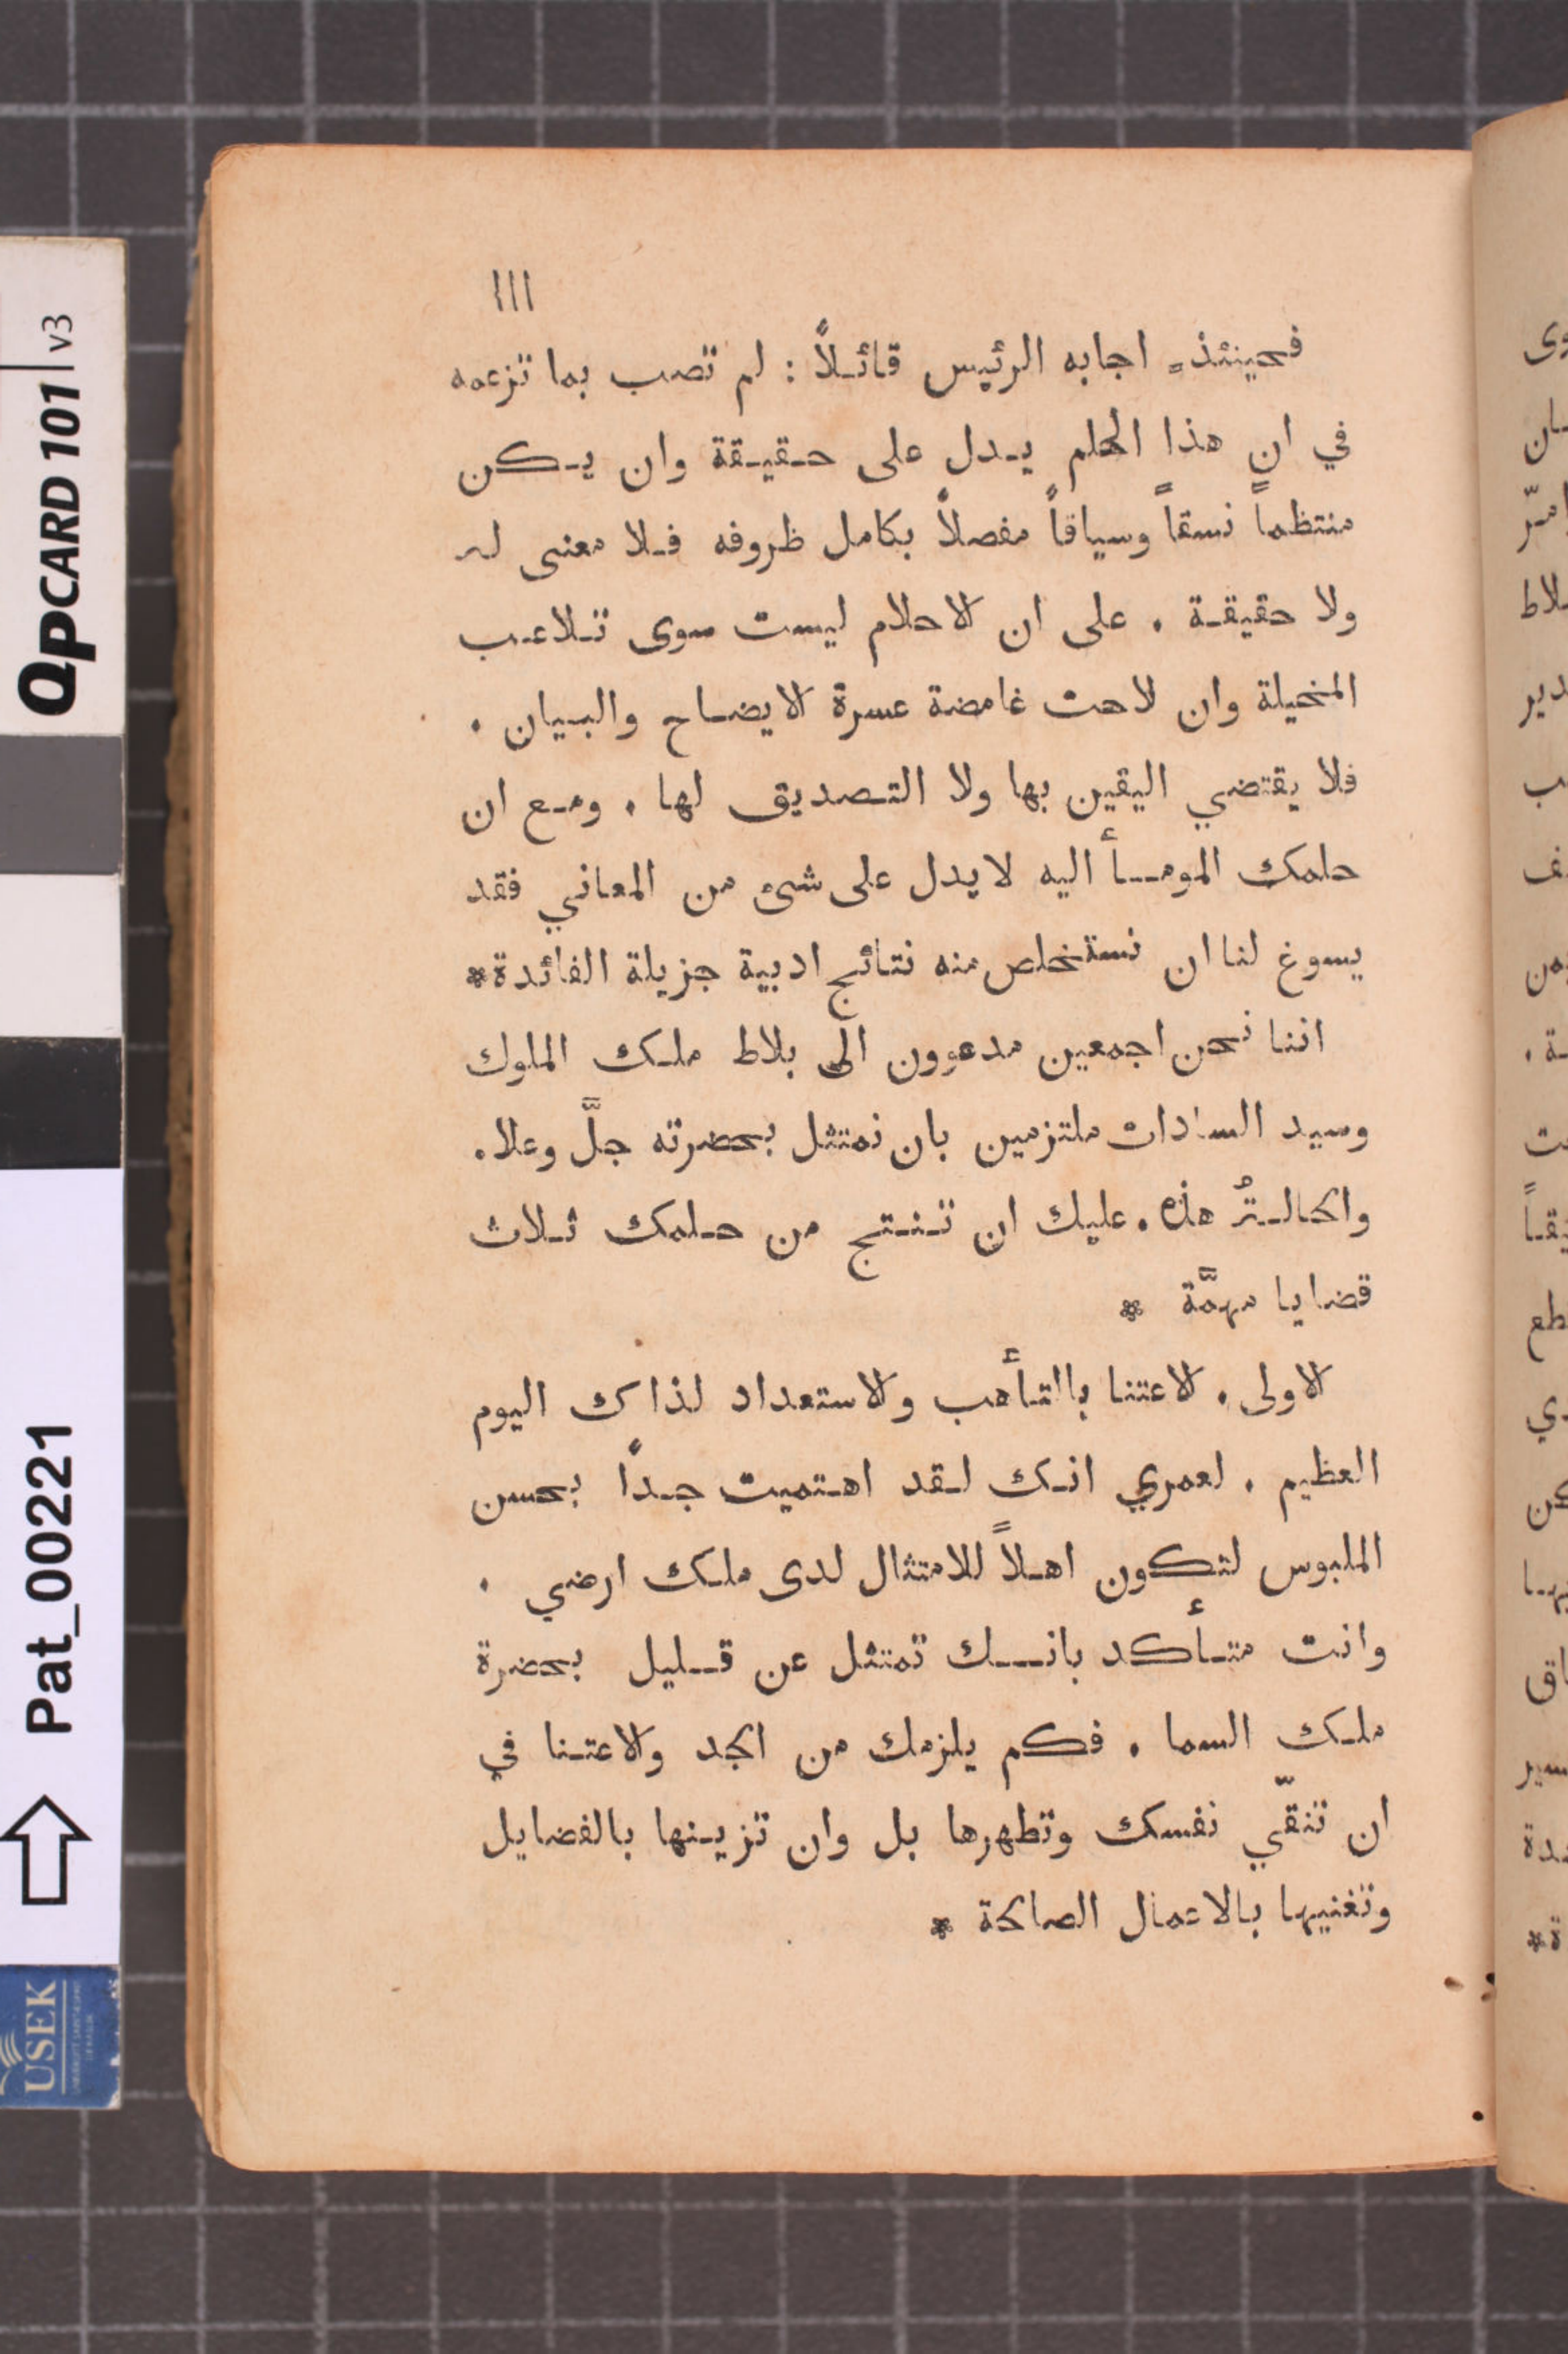 ١١١
فحينئذٍ اجابه الرئيس قائلاً : لم تصب بما تزعمه
في ان هذا الحلم يدل على حقيقة وان يكن
منتظماً نسقاً وسياقاً مفصلاً بكامل ظروفه فلا معنى له
ولا حقيقة . على ان الاحلام ليست سوى تلاعب
المخيلة وان لاحت غامضة عسرة الايضاح والبيان .
فلا يقتضي اليقين بها ولا التصديق لها . ومع ان
حلمك المومأ اليه لا يدل على شئ من المعاني فقد
يسوغ لنا ان نستخلص منه نتائج ادبية جزيلة الفائدة *
اننا نحن اجمعين مدعوون الى بلاط ملك الملوك
وسيد السادات ملتزمين بان نمتثل بحضرته جلَّ وعلا .
والحالةُ هذه . عليك ان تنتج من حلمك ثلاث
قضايا مهمَّة *
الاولى . الاعتنا باالتأهب والاستعداد لذاك اليوم
العظيم . لعمري انك لقد اهتميت جداً بحسن
الملبوس لتكون اهلاً للامتثال لدى ملك ارضي .
وانت متأكد بانك تمتثل عن قليل بحضرة
ملك السما . فكم يلزمك من الجد والاعتنا في
ان تنقّي نفسك وتطهرها بل وان تزينها بالفضايل
وتغنيها بالاعمال الصالحة *
QPCARD 101 v3
Pat_00221
USEK